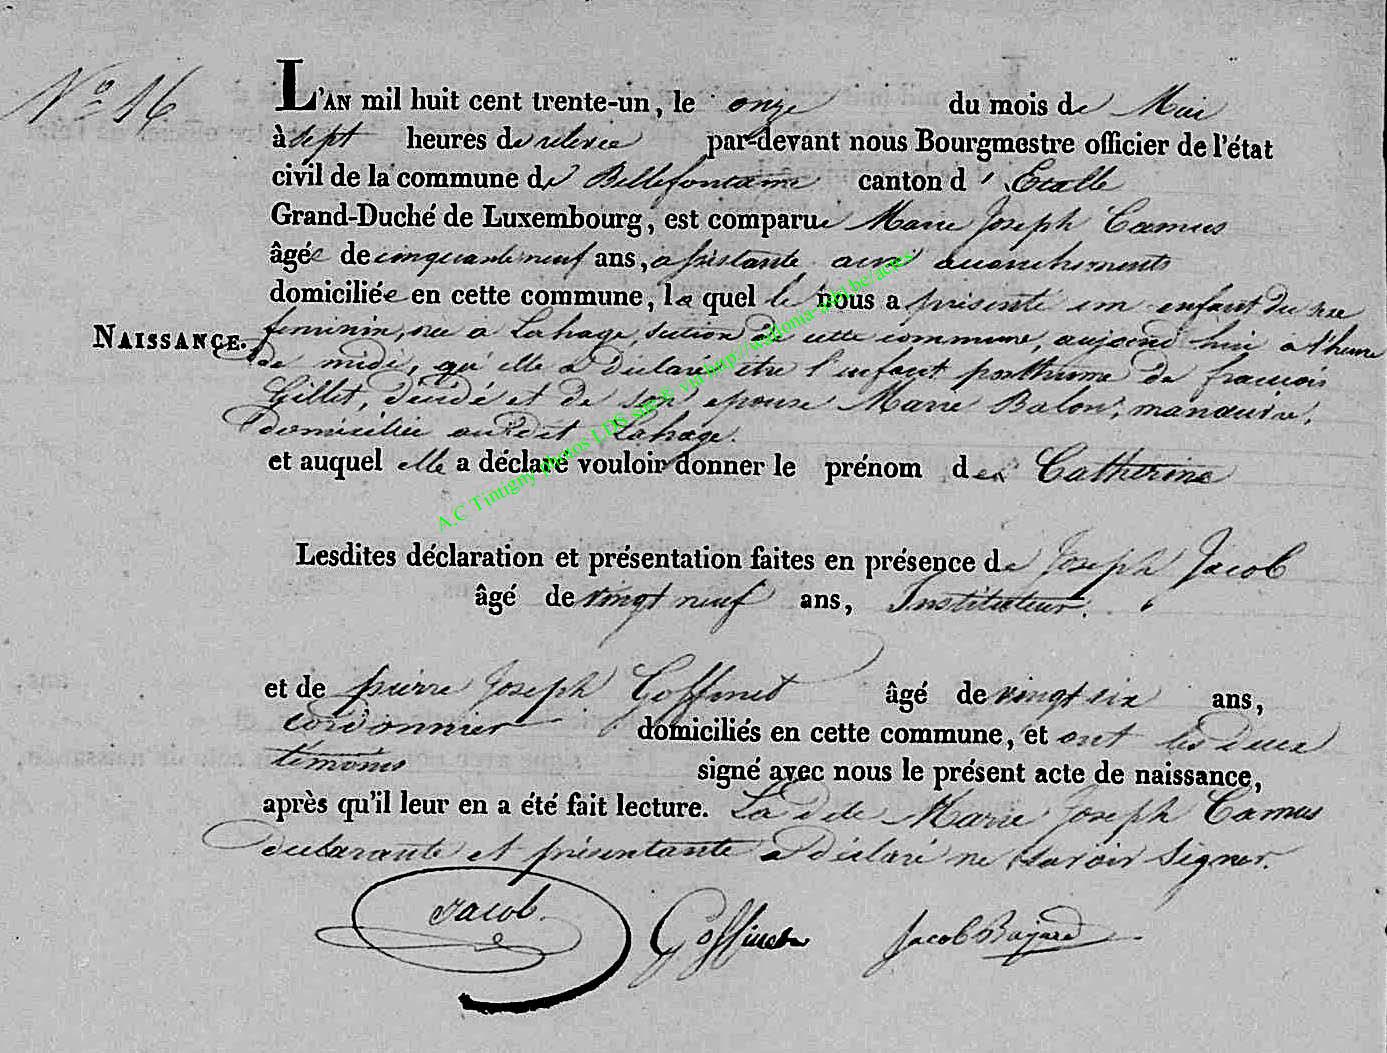 N° 16
L'AN mil huit cent trente-un, le onze du mois de Mai
à sept heures de relevée par-devant nous Bourgmestre officier de l'état
civil de la commune de Bellefontaine canton d' Etalle
Grand-Duché de Luxembourg, est comparue Marie Joseph Camus
âgée de cinquante neuf ans, assistante aux accouchements
domiciliée en cette commune, la quel le nous a présenté un enfant du sexe
NAISSANCE.
feminin, née a Lahage, section de cette commune, aujourd hui a l'heure
de midi, qu'elle a déclaré etre l'enfant posthume de francois
Gillet, décédé et de son epouse Marie Balon, manœuvre,
domiciliée audit Lahage.
et auquel elle a déclaré vouloir donner le prénom de Catherine
A.C Tintigny photos LDS site © via http://wallonia-asbl.be/actes
Lesdites déclaration et présentation faites en présence de Joseph Jacob
âgé de vingt neuf ans, Instituteur.
et de pierre Joseph Goffinet âgé de vingt six ans,
cordonnier domiciliés en cette commune, et ont les deux
témoins signé avec nous le présent acte de naissance,
après qu'il leur en a été fait lecture. La dde Marie Joseph Camus
déclarante et présentante a déclaré ne savoir signer.
Jacob Goffinet Jacob